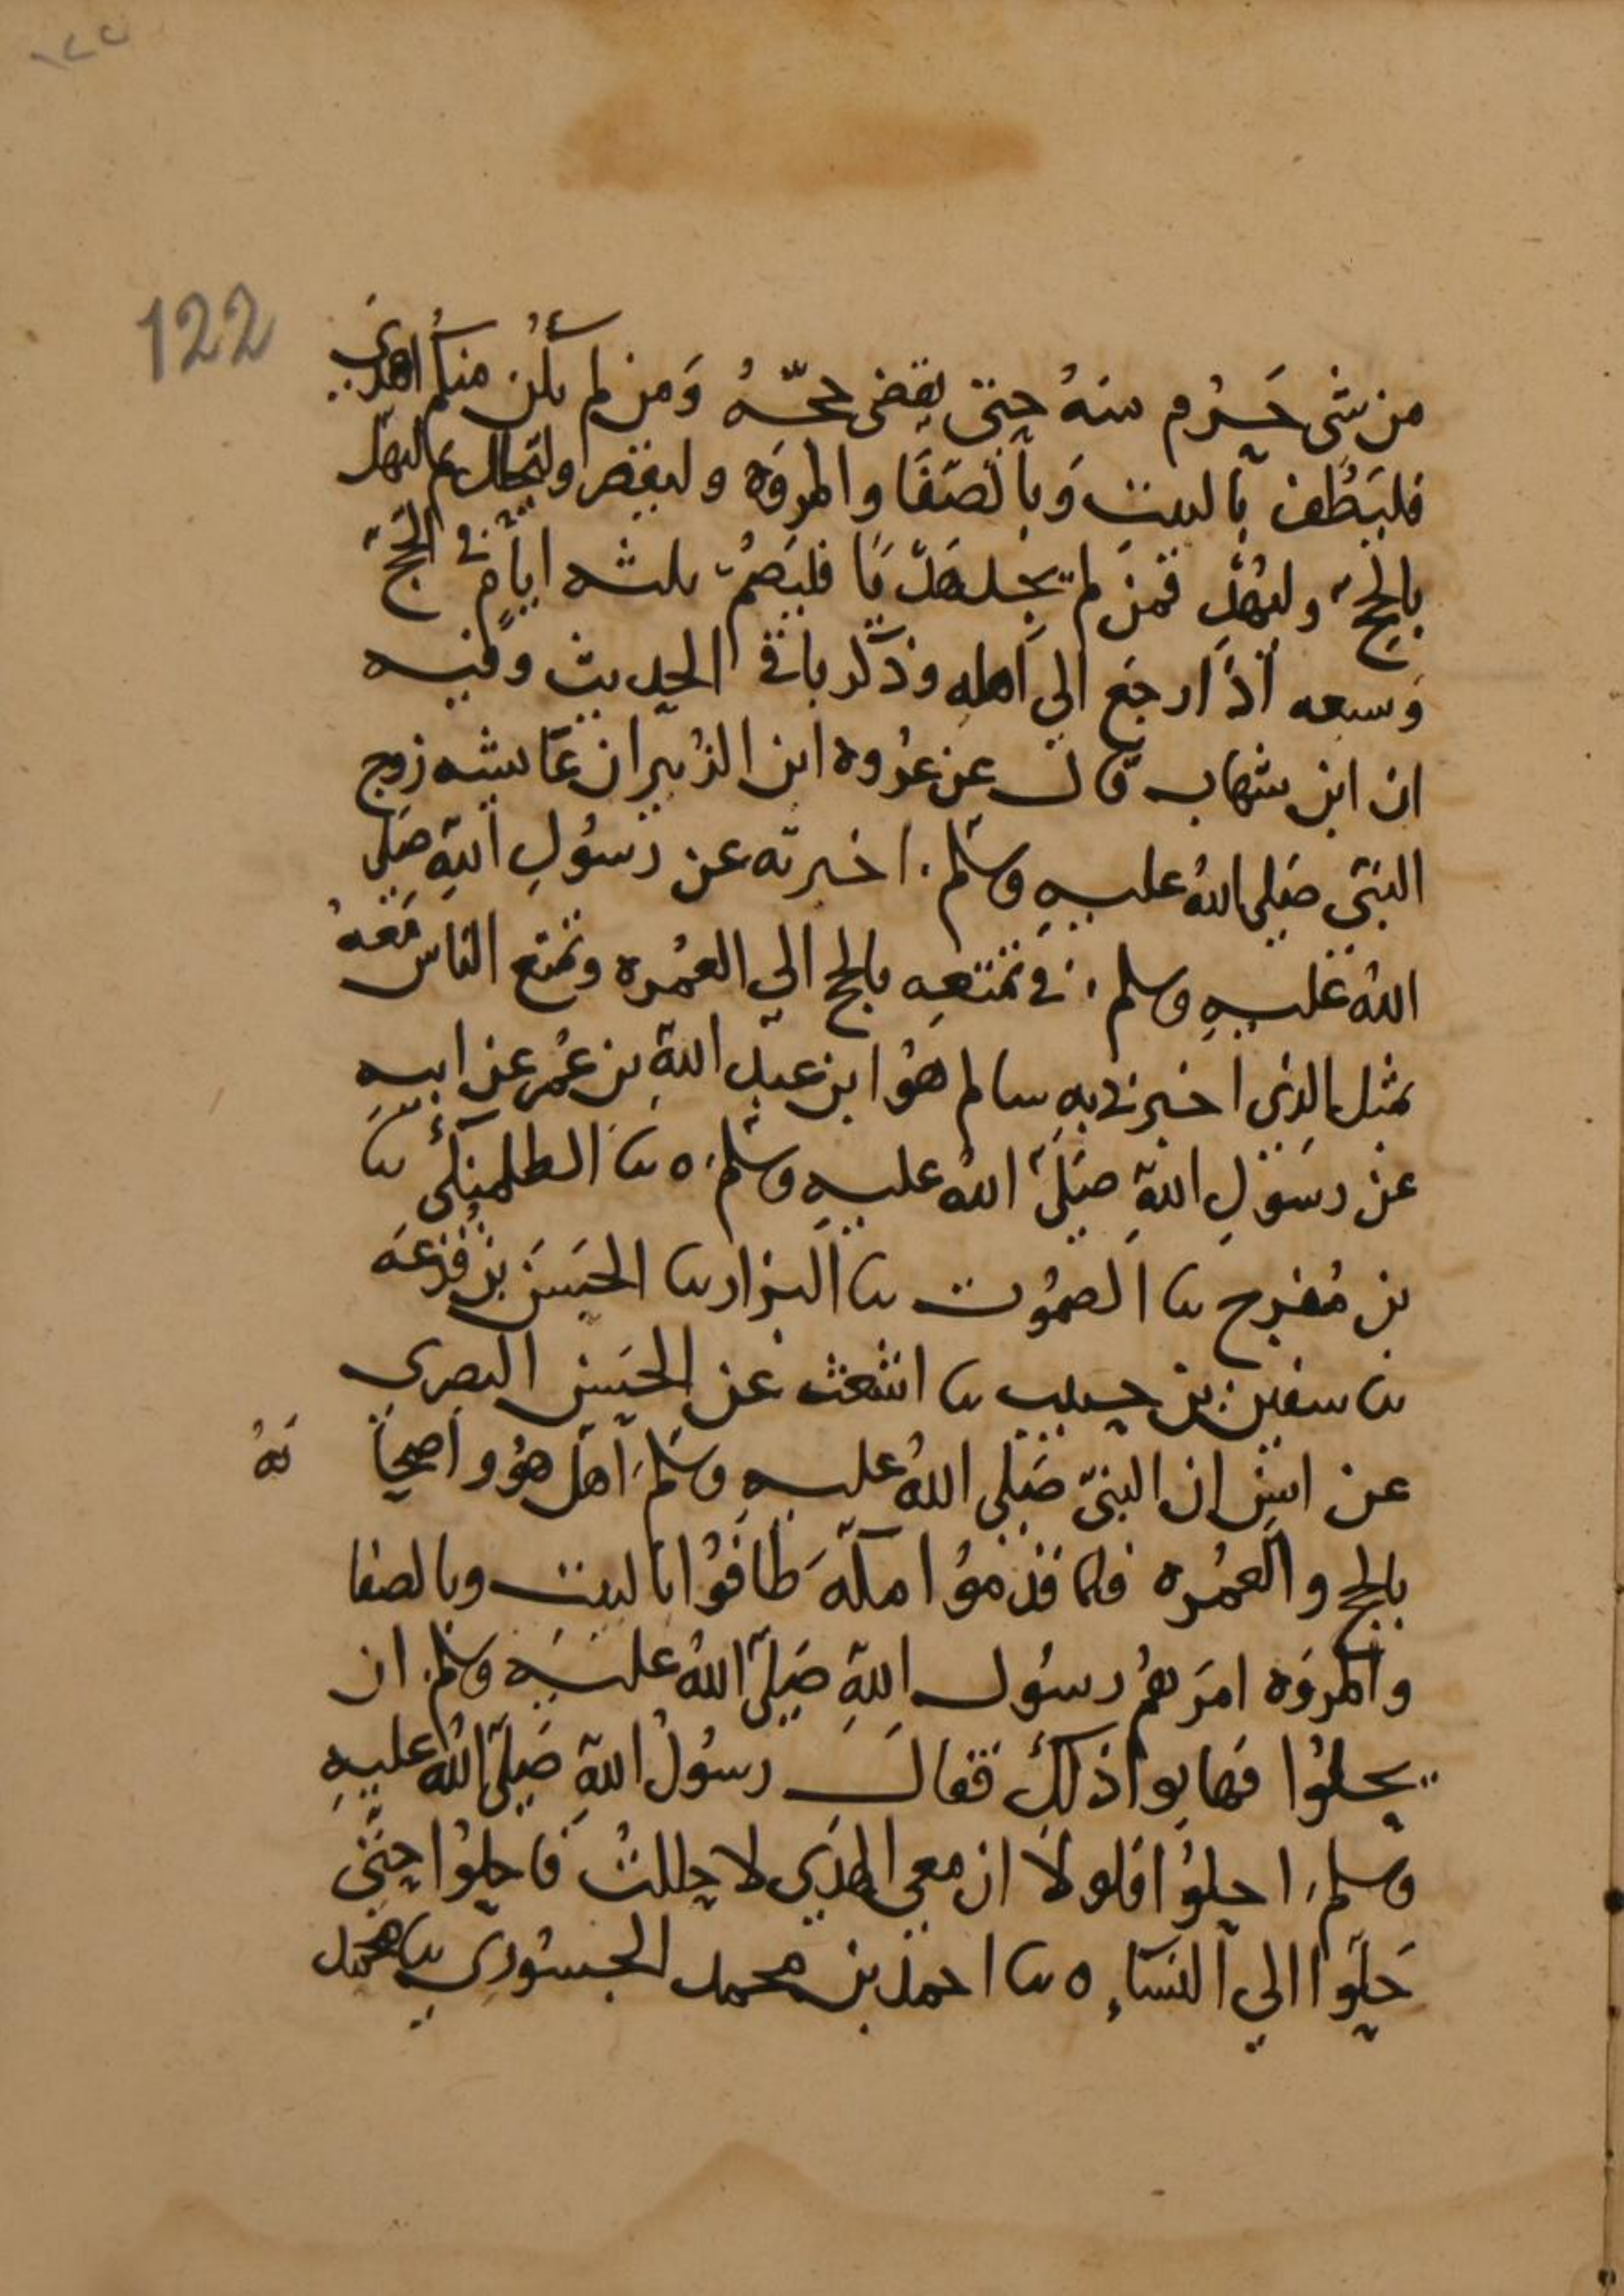 ١٢٢
122
من شى حَرُم منهُ حتى يقضى حجّهُ وَمن لم يكن منكم اهدى
فليَطُف بالبيت وَبالصَفَا والمروَه وليقصر وليحلل ثم ليهل
بالحجّ وليُهدِ فمن لم يجد هَدْيًا فليَصُمْ ثلثه ايامٍ في الحَجّ
وَسبعه اذَا رجَع الي اهله وذكر باقي الحديث وفيه
ان ابن شهاب قال عن عُروه ابن الزُبير ان عَايشه زوج
النبي صَلي اللهُ عليهِ وسَلم اخبرته عن رَسُولِ اللهِ صَلي
اللهُ عَليهِ وسلم في تمتعهِ بالحج الي العُمره وتمتع الناس مَعهُ
بمثل الذي اخبرني به سالم هُو ابن عبد اللهِ بن عُمر عن ابيهِ
عن رسَولِ اللهِ صَلَيّ اللهُ عليهِ وسَلم ٥ ثنا الطلمنكي ثنا
بن مُفرح ثنا الصمُوت ثنا البزار ثنا الحسَن بن قزعَه
ثنا سفين بن حبيب ثنا اشعث عن الحَسن البصري
عن انس ان النبيّ صَلي اللهُ عليهِ وسَلم اهل هُو واصحا بهُ
بالحج والعمُره فلما قدمُوا مكهَ طافُوا بالبيت وبالصفا
والمروَه امَرَهمُ رسُول اللهِ صَليّ اللهُ عليهِ وسلم ان
يحلوُا فهابوا ذلك فقال رسُولُ اللهِ صَليّ اللهُ عليهِ
وسلم احلوُا فلولا ان معي الهَدي لاحللتُ فاحلوُا حتي
حَلوا الي النسَاءِ ٥ ثنا احمد بن محمد الجسوري ثنا محمد